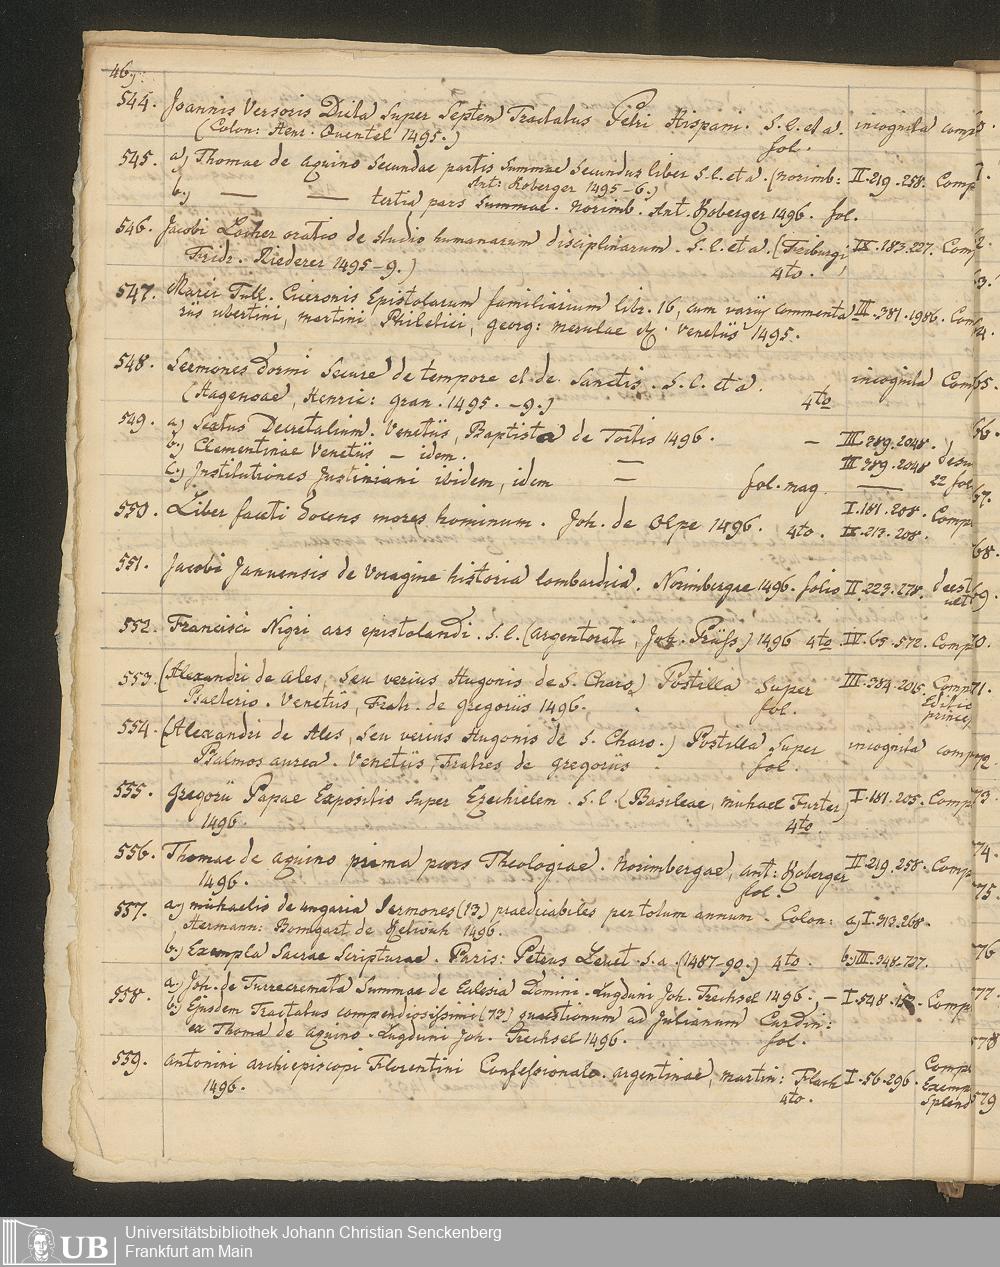 46)
544. Joannis Versoris Dicta super Septem Tractatus Petri Hispani. S. l. et a. incognita comp
(Colon: Henr. Quentel 1495.) fol.
545. a) Thomae de Aquino Secundae partis Summae Secundus liber S. l. et a. (Norimb: II. 219. 258. Comp
Ant: Koberger 1495-6.)
b) — — tertia pars Summae. Norimb. Ant. Koberger 1496. fol.
546. Jacobi Locher oratio de studio humanarum disciplinarum. S. l. et a. (Freiburgi, IX. 183. 227. Com
Fridr. Riederer 1495-9.) 4to.
547. Marci Tull. Ciceronis Epistolarum familiarium libr. 16, cum varijs commenta III. 381. 1986. Com
riis ubertini, martini Philelici, georg: merulae &. Venetiis 1495.
548. Sermones Dormi Secure de tempore et de Sanctis. S. l. et a. incognita Com
(Hagenoae, Henric: gran. 1495. -9.) 4to
549. a) Sextus Decretalium. Venetiis, Baptista de Tortis 1496. — III. 389. 2048.
b) Clementinae Venetiis — idem. — III 389. 2048 desu
c) Institutiones Justiniani ibidem, idem — fol. mag. — 22 fol
550. Liber faceti docens mores hominum. Joh. de Olpe 1496. 4to. I. 181. 208. Comp
IX. 213. 208.
551. Jacobi Januensis de Voragine historia lombardica. Norimbergae 1496. folio II. 223. 278. deest
552. Francisci Nigri ars epistolandi. S. l. (Argentorati, Joh. Prüss) 1496 4to. IV. 65. 572. Comp
553. (Alexandri de Ales, seu verius Hugonis de S. Charo) Postilla super III. 384. 2015. Comp
Psalterio. Venetiis, Fratr. de gregoriis 1496. fol. Editio
princep
554. (Alexandri de Ales, seu verius Hugonis de S. Charo.) Postilla super incognita comp
Psalmos aurea. Venetiis, Fratres de gregoriis fol.
555. Gregorii Papae Expositio super Ezechielem. S. l. (Basileae, michael Furter) I. 181. 205. Comp
1496. 4to.
556. Thomae de Aquino prima pars Theologiae. Norimbergae, ant: Koberger II. 219. 258. Comp
1496. fol.
557. a) michaelis de ungaria Sermones (13) praedicabiles per totum annum. Colon: a) I. 313. 268.
Hermann: Bomgart de Ketwich 1496.
b) Exempla Sacrae Scripturae. Paris: Petrus Levet. S. a. (1487-90.) 4to. b) III. 348. 727.
558. a) Joh. de Turrecremata Summae de Ecclesia Domini. Lugduni Joh. Trechsel 1496., — I. 548. Comp
b) Ejusdem Tractatus compendiosissimi (73) quaestionum ad Julianum Cardin:
ex Thoma de Aquino. Lugduni Joh. Trechsel 1496. fol.
559. Antonini archiepiscopi Florentini Confessionale. argentinae, martin: Flach I. 56. 296. Comp
1496. 4to. Exemp
Splend
65.
66.
67.
68.
69.
70.
71.
72.
73.
74.
75.
76
77.
578
579
Universitätsbibliothek Johann Christian Senckenberg
Frankfurt am Main
UB